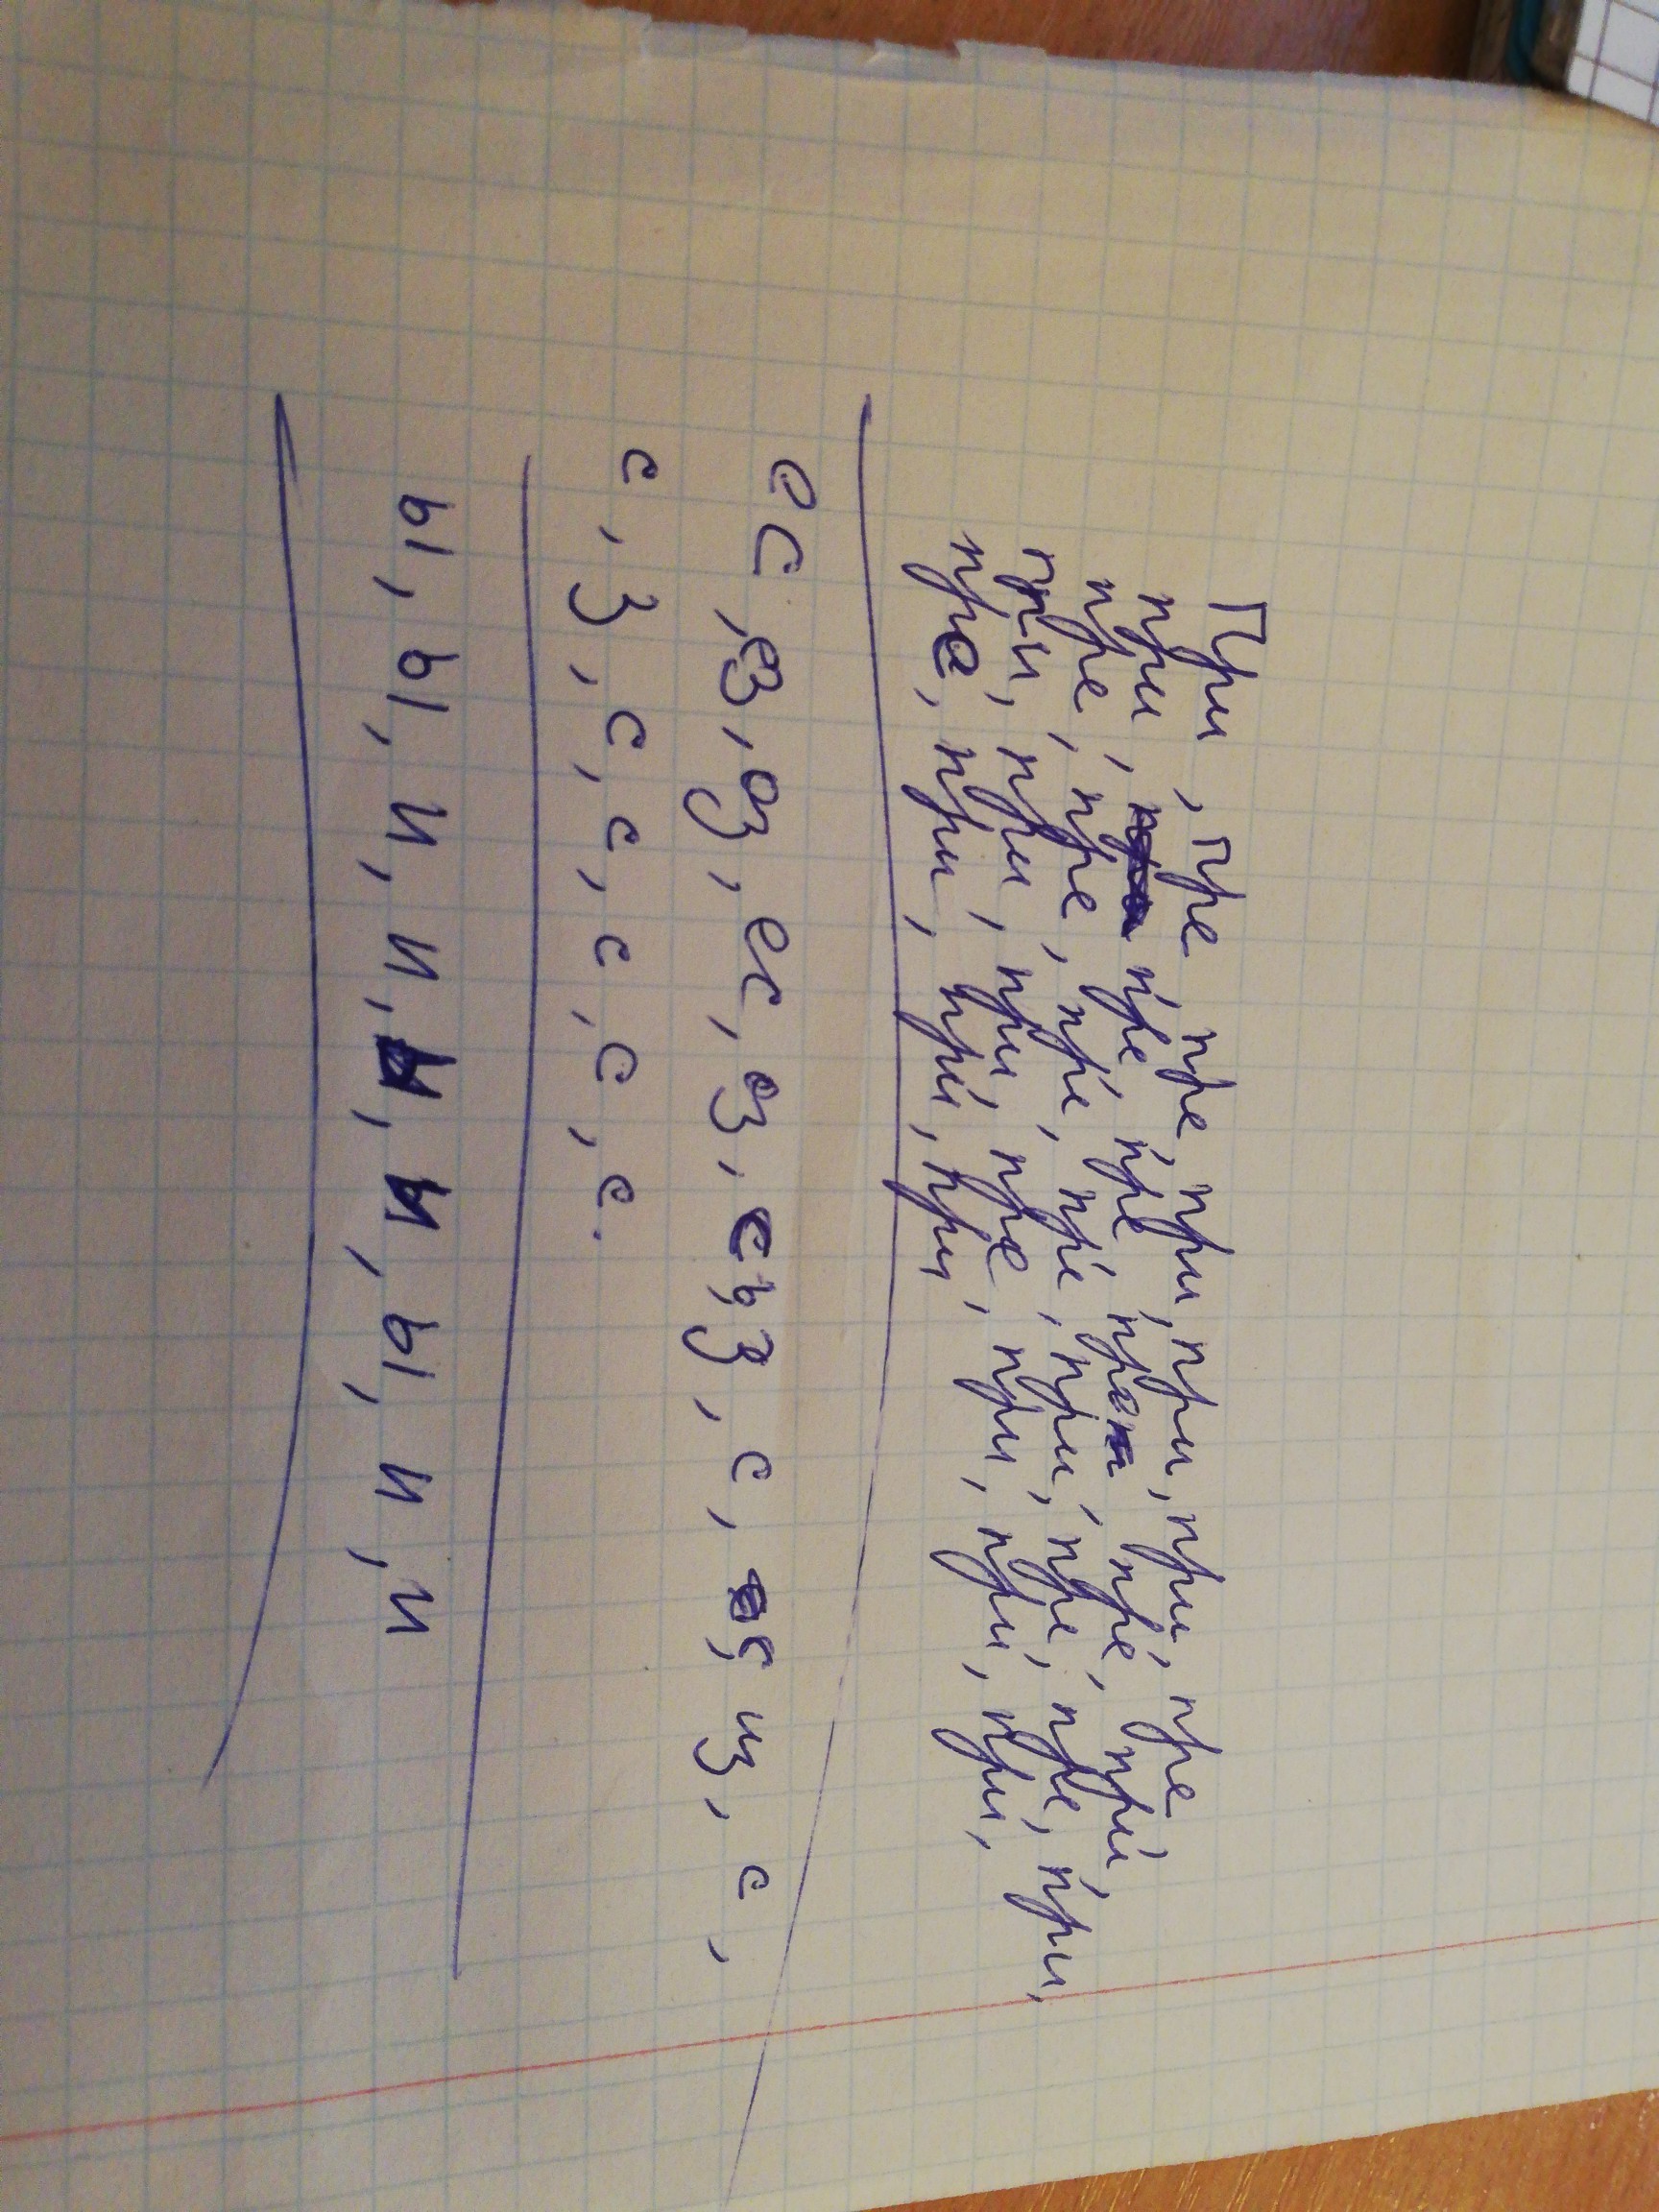 При, пре, пре, при, при, при, пре
при, пре, пре, пре, пре, при,
пре, пре, пре, пре, при, пре, пре, при,
при, при, при, пре, при, при, при,
пре, при, при, при
ес, ез, оз, ес, оз, с, з, с, с, из, с,
с, з, с, с, с, с, с.
ы, ы, и, и, и, и, ы, и, и